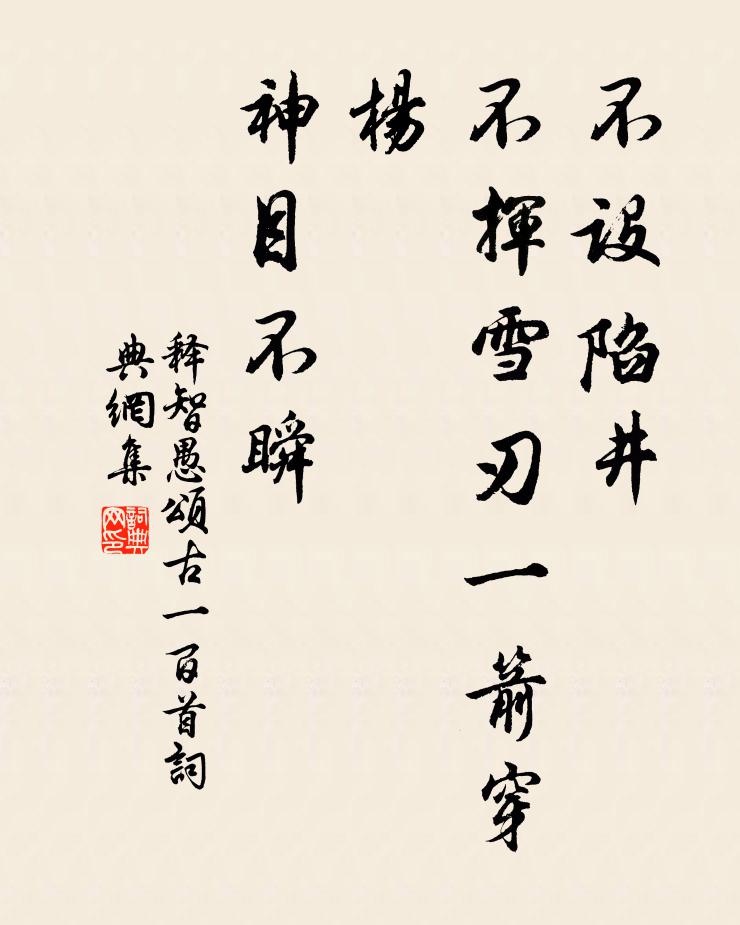 不設陷井
不揮雪刃一箭穿
楊
神目不瞬
释智愚頌古一百首詞
典網集
詞典
网印